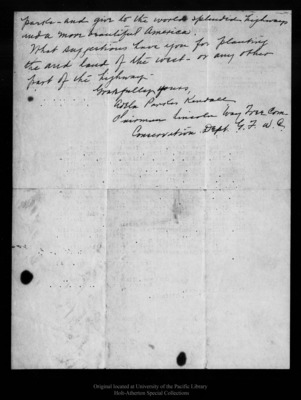 parks - and give to the world splendid highways
and a more beautiful America.
What suggestions have you for planting
the arid land of the west - or any other
part of the highway.
Gratefully yours,
Kendall
Lincoln Way Tree Com
Conservation Dept. G. F. W. C.
Original located at University of the Pacific Library
Holt-Atherton Special Collections